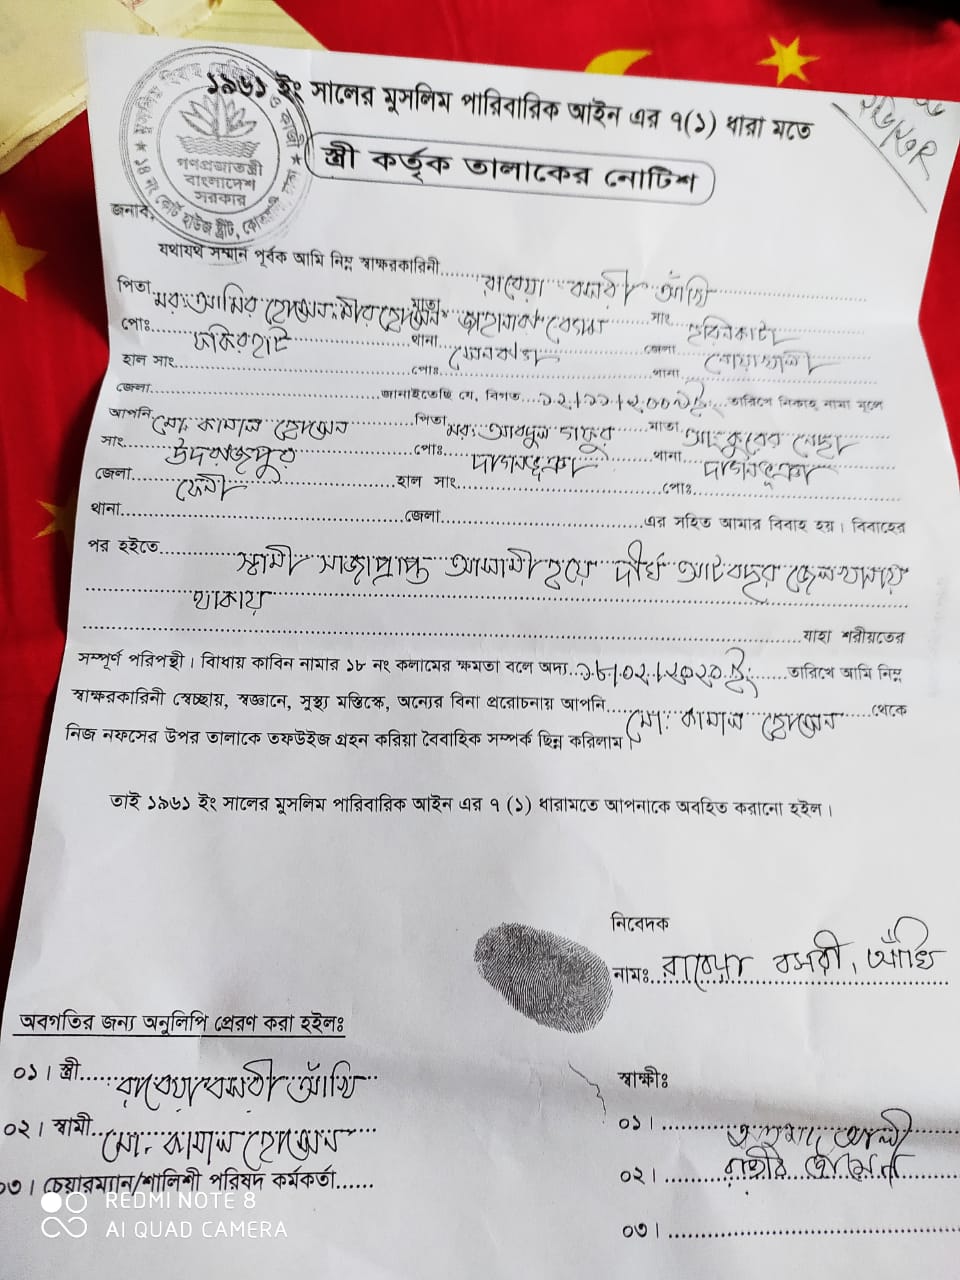 ১৯৬১ ইং সালের মুসলিম পারিবারিক আইন এর ৭(১) ধারা মতে
স্ত্রী কর্তৃক তালাকের নোটিশ
গণপ্রজাতন্ত্রী
বাংলাদেশ
সরকার
জনাব,
যথাযথ সম্মান পূর্বক আমি নিম্ন স্বাক্ষরকারিনী রাবেয়া বসরী আঁখি
পিতা মর: আমির হোসেন মাতা জাহানারা বেগম সাং
পোঃ ফকিরহাট থানা জেলা নোয়াখালী
হাল সাং পোঃ থানা
জেলা জানাইতেছি যে, বিগত ১২/১১/২০০৯ইং তারিখে নিকাহ্ নামা মূলে
আপনি মো: কামাল হোসেন পিতা মর: আবদুল গফুর মাতা
সাং পোঃ দাগনভূঞা থানা দাগনভূঞা
জেলা ফেনী হাল সাং পোঃ
থানা জেলা এর সহিত আমার বিবাহ হয়। বিবাহের
পর হইতে স্বামী সাজাপ্রাপ্ত আসামী হয়ে দীর্ঘ আটবছর জেলখানায়
থাকায়
যাহা শরীয়তের
সম্পূর্ণ পরিপন্থী। বিধায় কাবিন নামার ১৮ নং কলামের ক্ষমতা বলে অদ্য ১৮/০২/২০২০ইং তারিখে আমি নিম্ন
স্বাক্ষরকারিনী স্বেচ্ছায়, স্বজ্ঞানে, সুস্থ্য মস্তিস্কে, অন্যের বিনা প্ররোচনায় আপনি মো: কামাল হোসেন থেকে
নিজ নফসের উপর তালাকে তফউইজ গ্রহন করিয়া বৈবাহিক সম্পর্ক ছিন্ন করিলাম।
তাই ১৯৬১ ইং সালের মুসলিম পারিবারিক আইন এর ৭ (১) ধারামতে আপনাকে অবহিত করানো হইল।
নিবেদক
নামঃ রাবেয়া বসরী আঁখি
অবগতির জন্য অনুলিপি প্রেরণ করা হইলঃ
০১। স্ত্রী রাবেয়া বসরী আঁখি
স্বাক্ষীঃ
০২। স্বামী মো: কামাল হোসেন
০১।
০৩। চেয়ারম্যান/শালিশী পরিষদ কর্মকর্তা
০২।
০৩।
REDMI NOTE 8
AI QUAD CAMERA